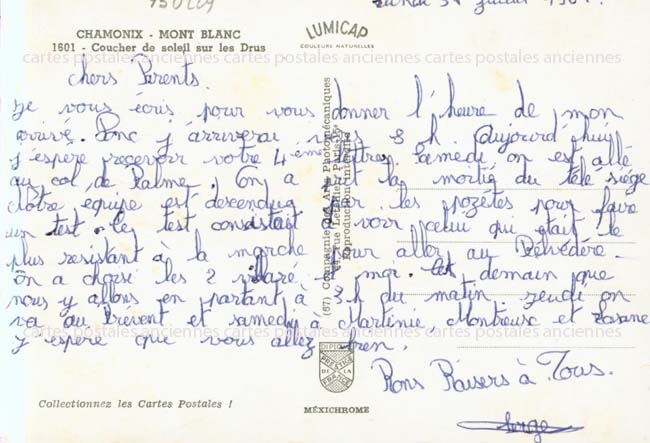 CHAMONIX - MONT BLANC
1601 - Coucher de soleil sur les Drus
LUMICAP
COULEURS NATURELLES
Lundi 31 Juillet
cartes postales anciennes cartes postales anciennes cartes postales anciennes
chers Parents.
je vous écris pour vous donner l'heure de mon
arrivé. Donc j'arriverai vers 8 h. Aujourd'hui
j'espère recevoir votre 4ème lettre. Samedi on est allé
au col de Balme. On a pret la moitié du télé-siège
Notre équipe est descendu par les pozètes pour faire
un test. le test consistait à voir celui qui était le
plus resistant à la marche pour aller au Belvédère.
On a choisi les 2 et moi. demain que
nous y allons en partant à 3h du matin. jeudi on
va au Brévent et samedi à Martinie, Montreux et Lozane
cartes postales anciennes cartes postales anciennes cartes postales anciennes
j'espère que vous allez bien.
Bons Baisers à Tous.
Serge
(67) Compagnie des Arts Photomécaniques
44, rue Letellier, Paris-15e
Reproduction interdite
DIPLOME
PRESTIGE
DE LA
FRANCE
Collectionnez les Cartes Postales !
MÉXICHROME